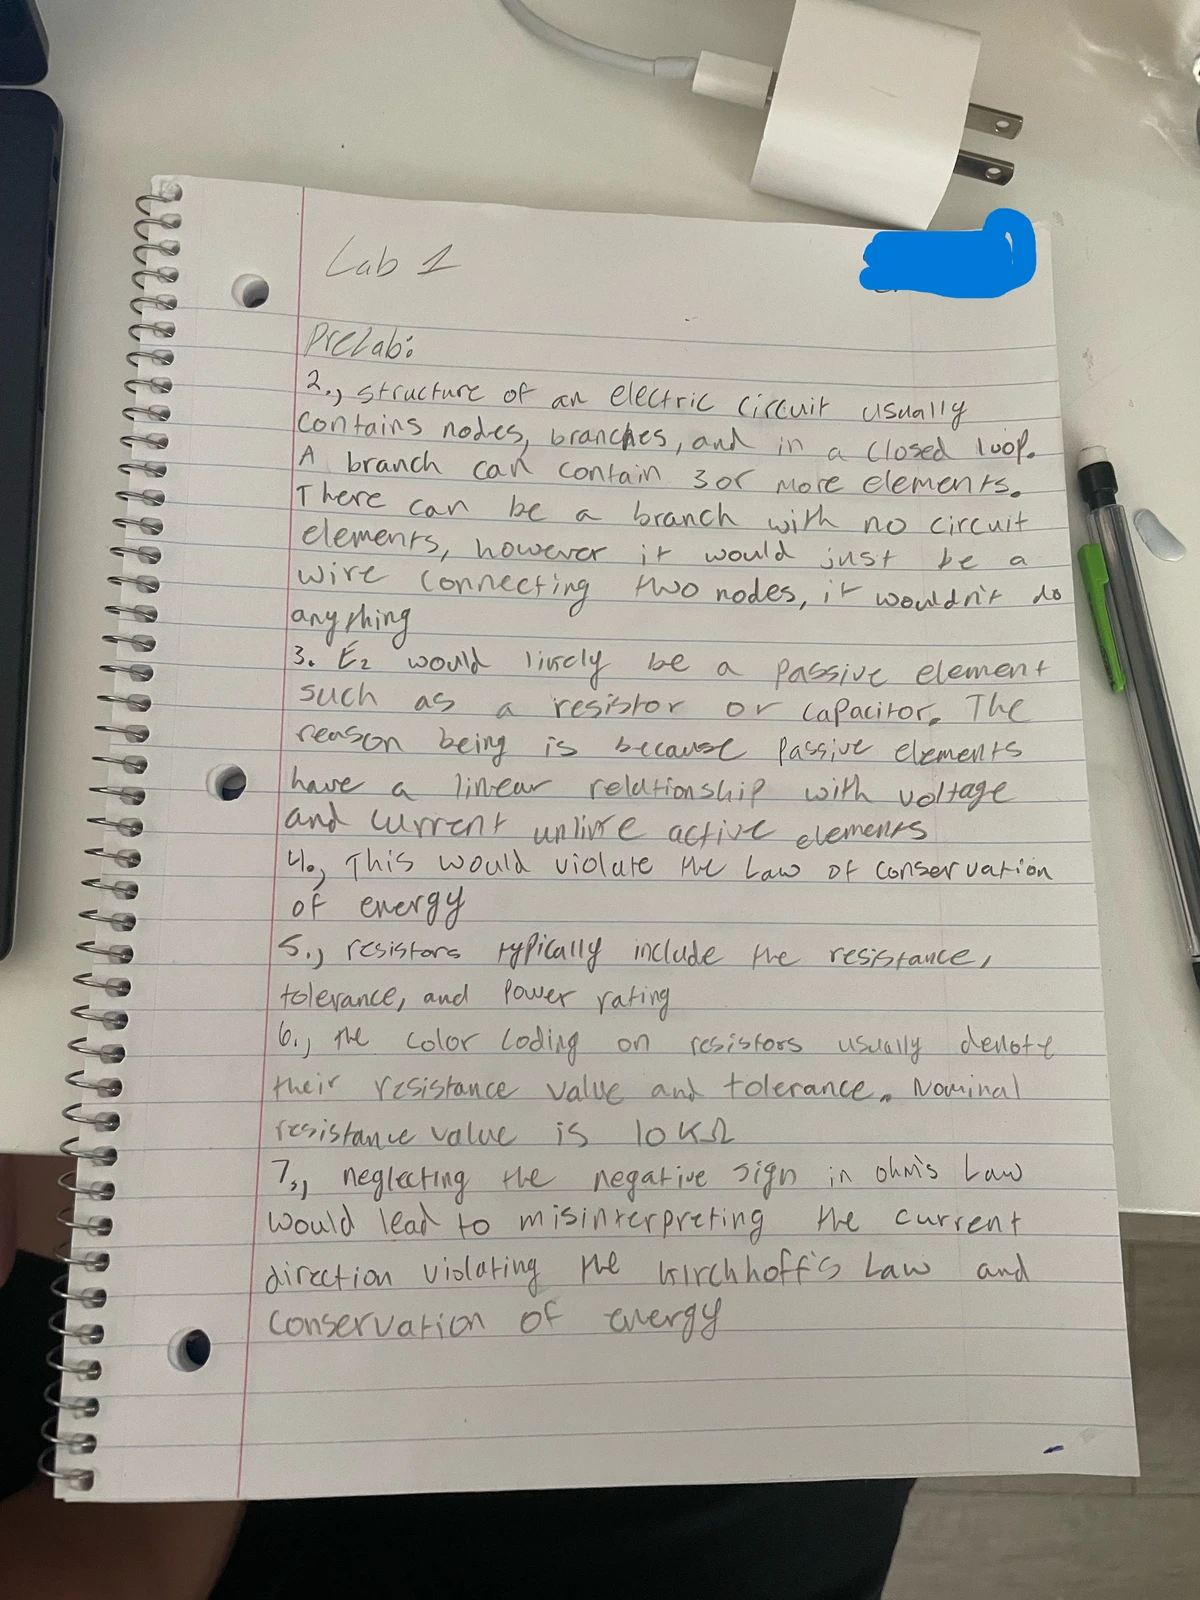 Lab 1
Prelab:
2., structure of an electric circuit usually
contains nodes, branches, and in a closed loop.
A branch can contain 3 or more elements.
There can be a branch with no circuit
elements, however it would just be a
wire connecting two nodes, it wouldn't do
anything
3. E2 would likely be a passive element
such as a resistor or capacitor. The
reason being is because passive elements
have a linear relationship with voltage
and current unlike active elements
4., This would violate the Law of conservation
of energy
5., resistors typically include the resistance,
tolerance, and power rating
6., the color coding on resistors usually denote
their resistance value and tolerance. Nominal
resistance value is 10 KΩ
7., neglecting the negative sign in ohm's Law
would lead to misinterpreting the current
direction violating the kirchhoff's Law and
conservation of energy